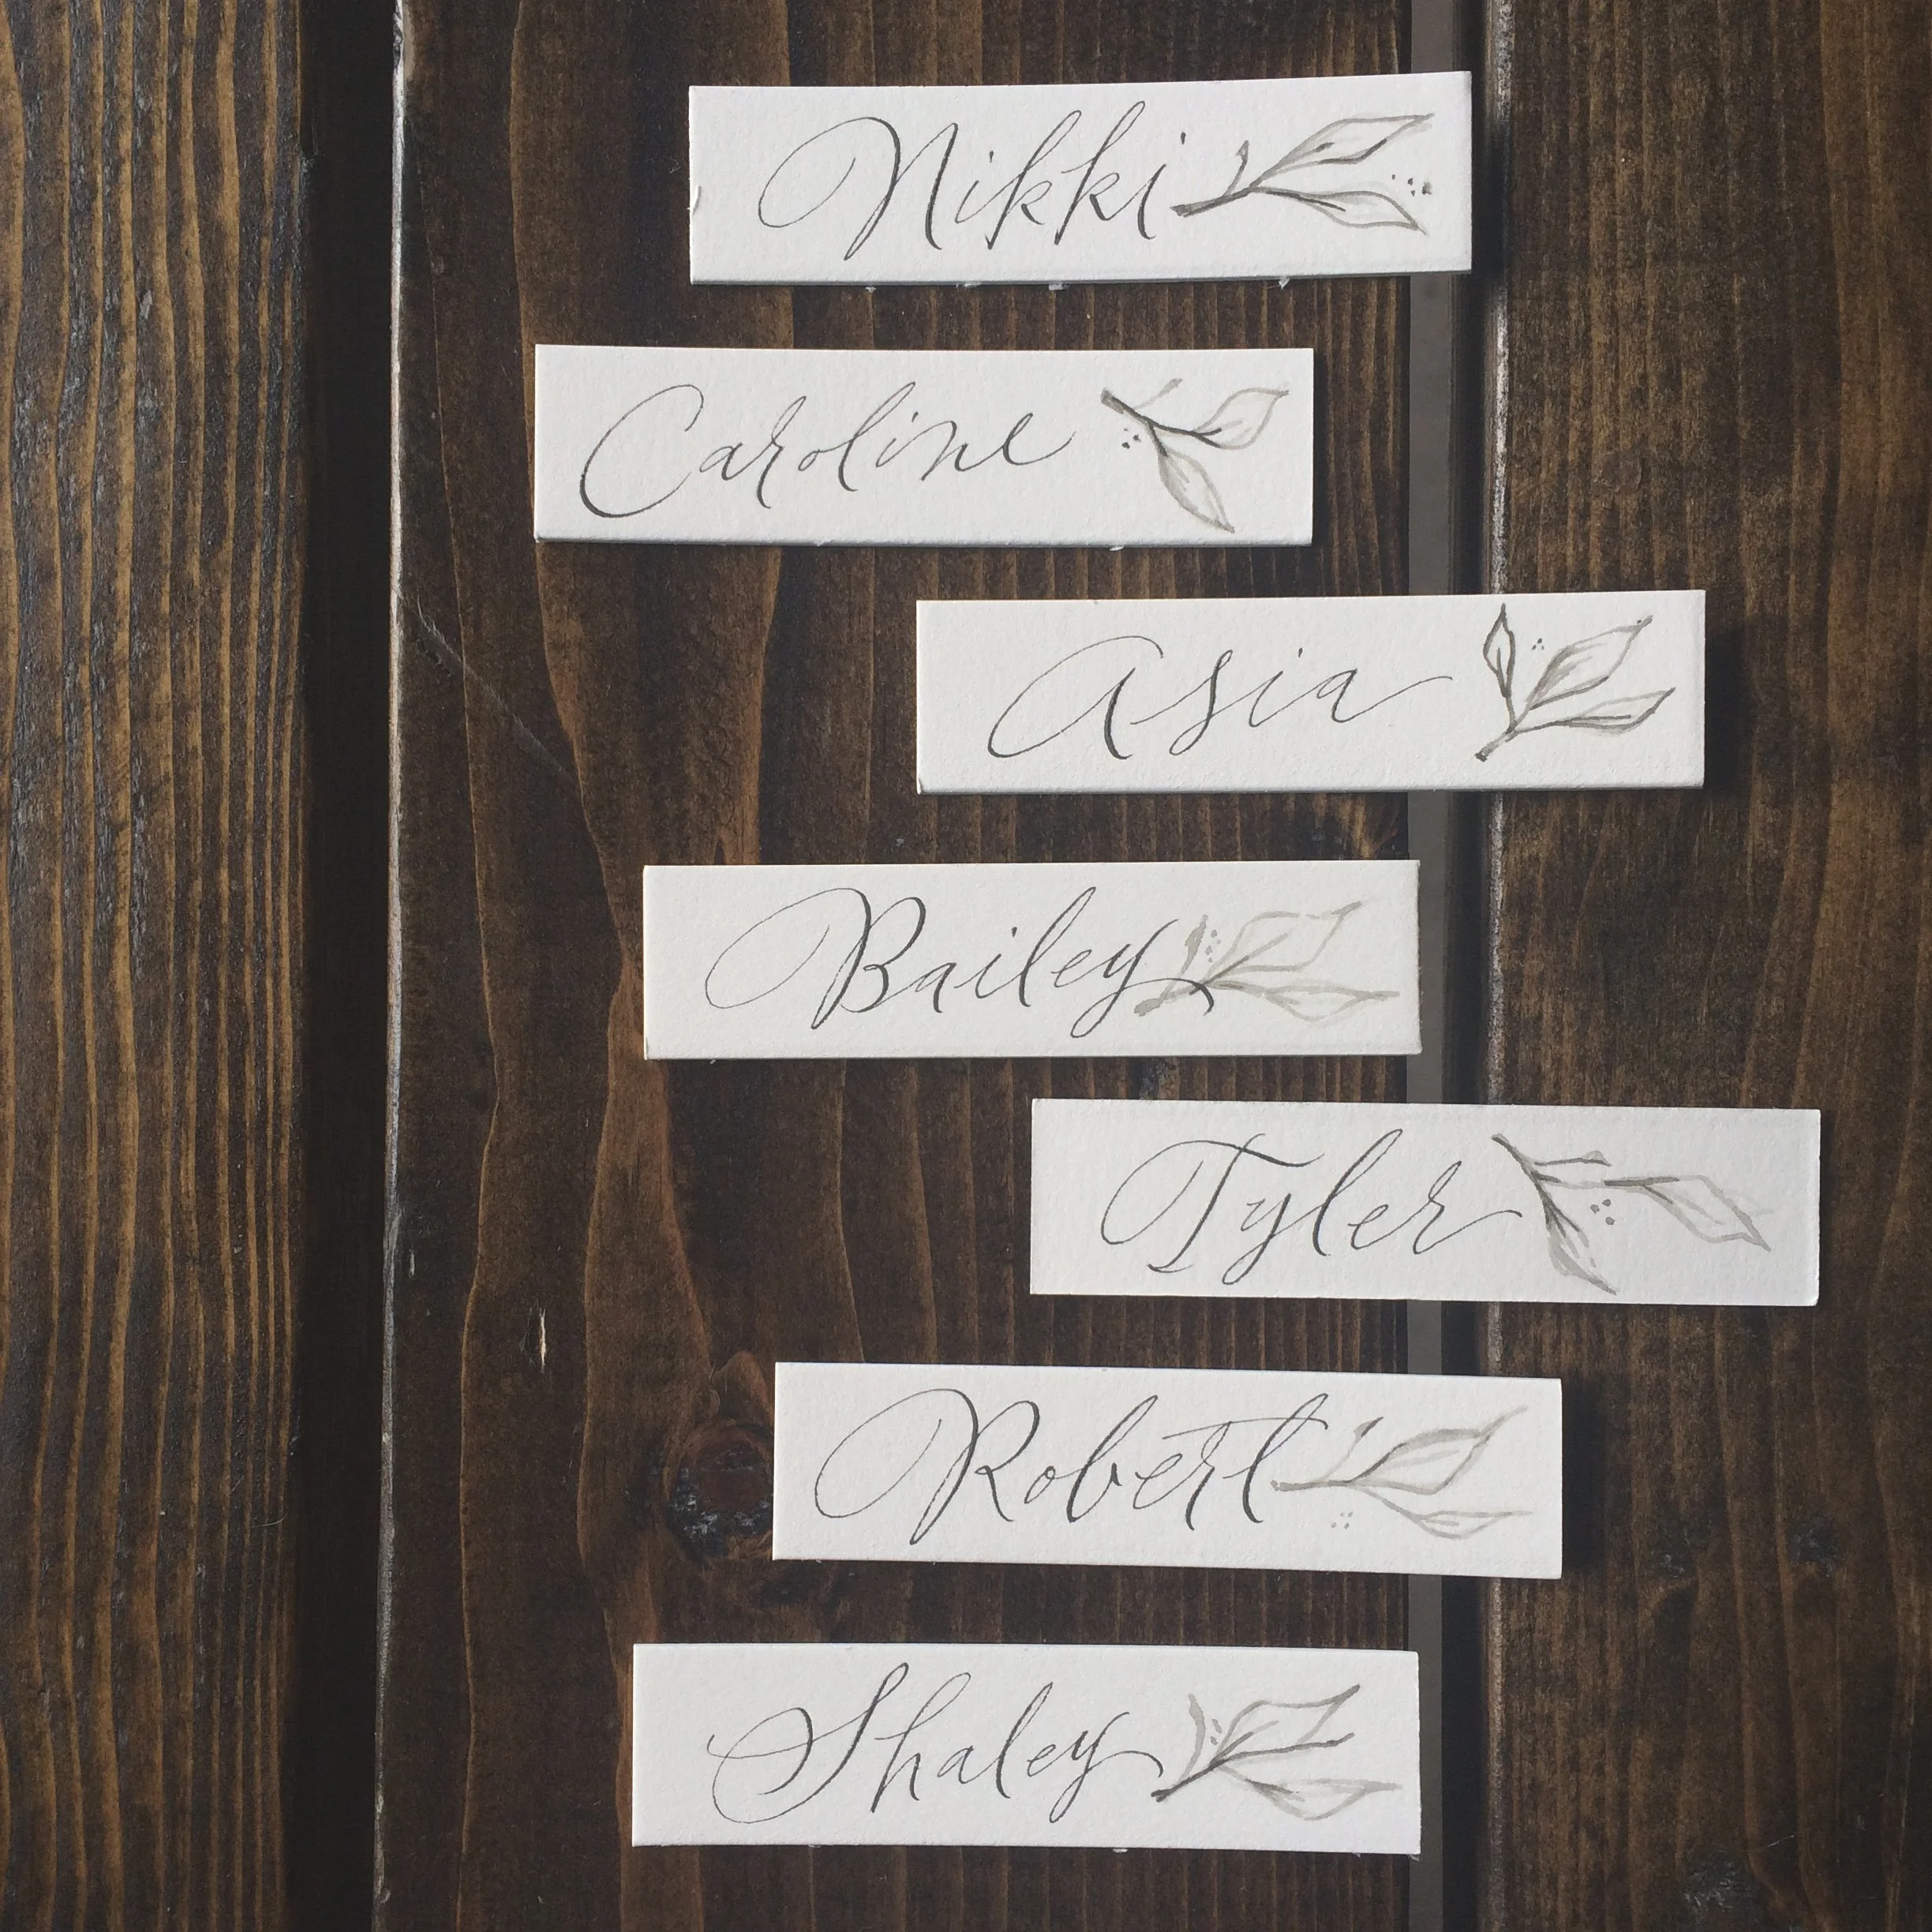 Nikki
Caroline
Asia
Bailey
Tyler
Robert
Shaley